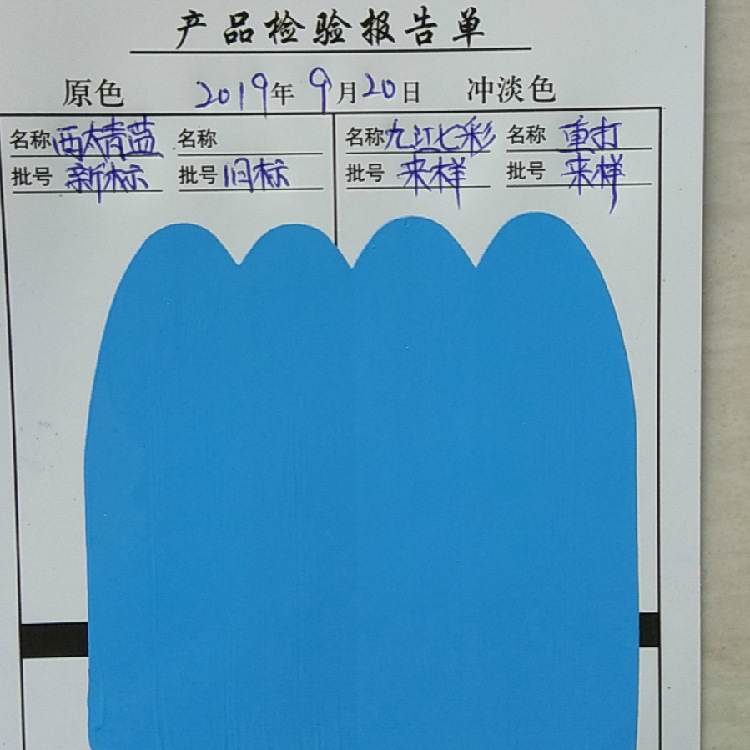 产品检验报告单
原色 2019年9月20日 冲淡色
名称 西太青蓝 名称 名称 九江七彩 名称 重打
批号 新标 批号 旧标 批号 来样 批号 来样